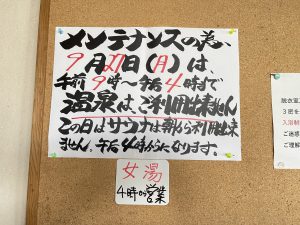 メンテナンスの為、
9月27日(月)は
午前9時～午后4時まで
温泉は、ご利用出来ません
この日はサウナは朝から利用出来
ません、午后4時からになります。
女湯
4時の営業
脱衣室
3密を
入浴制
ご迷惑
ご理解